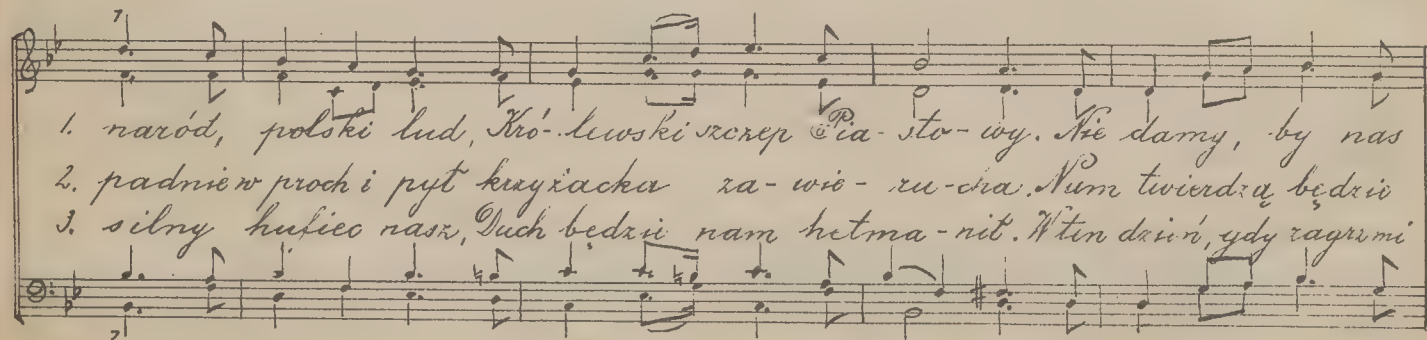 7
1. naród, polski lud, Kró-lewski szczep Pia-sto-wy. Nie damy, by nas
2. padnie w proch i pył krzyżacka za-wie-ru-cha. Nam twierdzą będzie
3. silny hufiec nasz, Duch będzie nam hetma-nił. W ten dzień, gdy zagrzmi
7